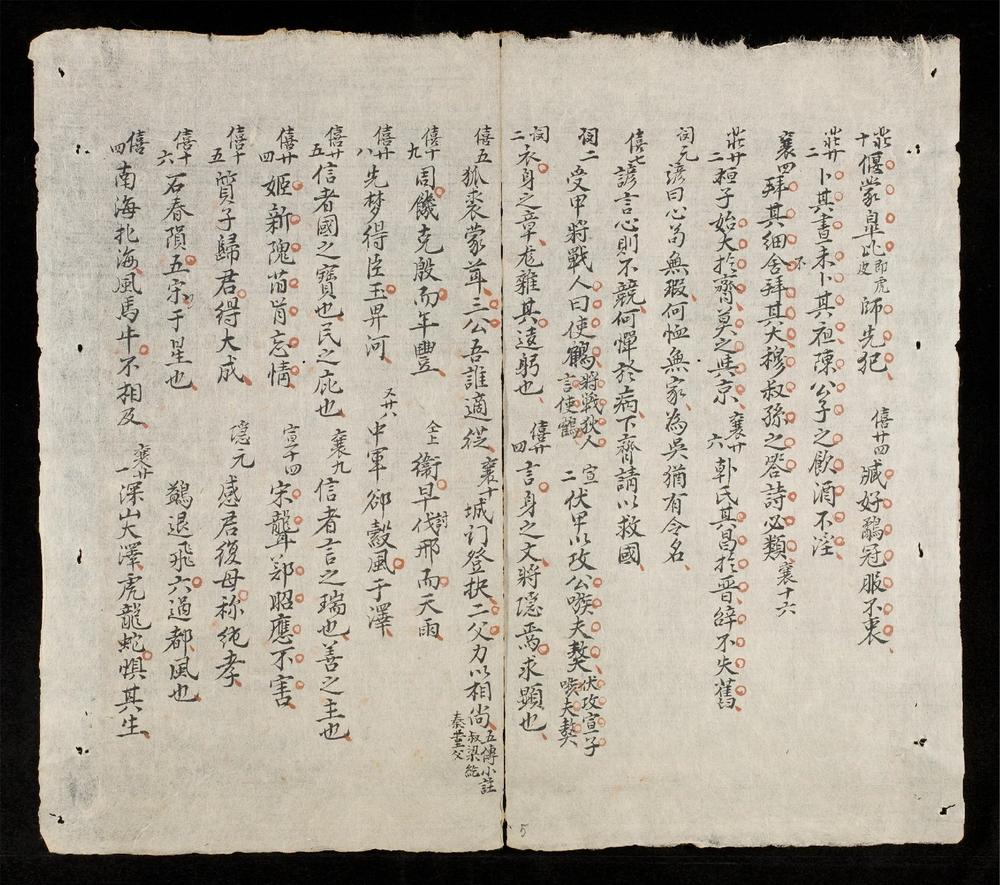 莊十 偃蒙皐比即虎皮師先犯 僖廿四 臧好鷸冠服不衷
莊廿二 卜其晝未卜其夜陳公子之飲酒不淫
襄四 拜其細舍不拜其大穆叔孫之答詩必類 襄十六
莊廿二 桓子始大於齊莫之與京 襄廿六 韓氏其昌於晉辭不失舊
閔元 諺曰心苟無瑕何恤無家為吳猶有令名
僖七 諺言心則不競何憚於病下齊請以救國
閔二 受甲將戰人曰使鶴將戰狄人言使鶴 宣二 伏甲以攻公嗾夫獒伏攻宣子嗾夫獒
閔二 衣身之章尨雜其遠躬也 僖廿四 言身之文將隱焉求顯也
僖五 狐裘蒙茸三公吾誰適從 襄十 城門登抉二父力以相尚五傳小註叔梁紇秦堇父
僖十九 周饑克殷而年豐 仝上 衞旱伐討邢而天雨
僖廿八 先梦得臣玉畀河 又廿八 中軍郤縠風于澤
僖廿五 信者國之寶也民之庇也 襄九 信者言之瑞也善之主也
僖廿四 姬新隗笛肯忘情 宣十四 宋聾鄭昭應不害
僖十五 質子歸君得大成 隱元 感君復母称純孝
僖十六 石春隕五宋于星也 鷁退飛六過都風也
僖四 南海北海風馬牛不相及 襄廿一 深山大澤虎龍蛇惧其生
5